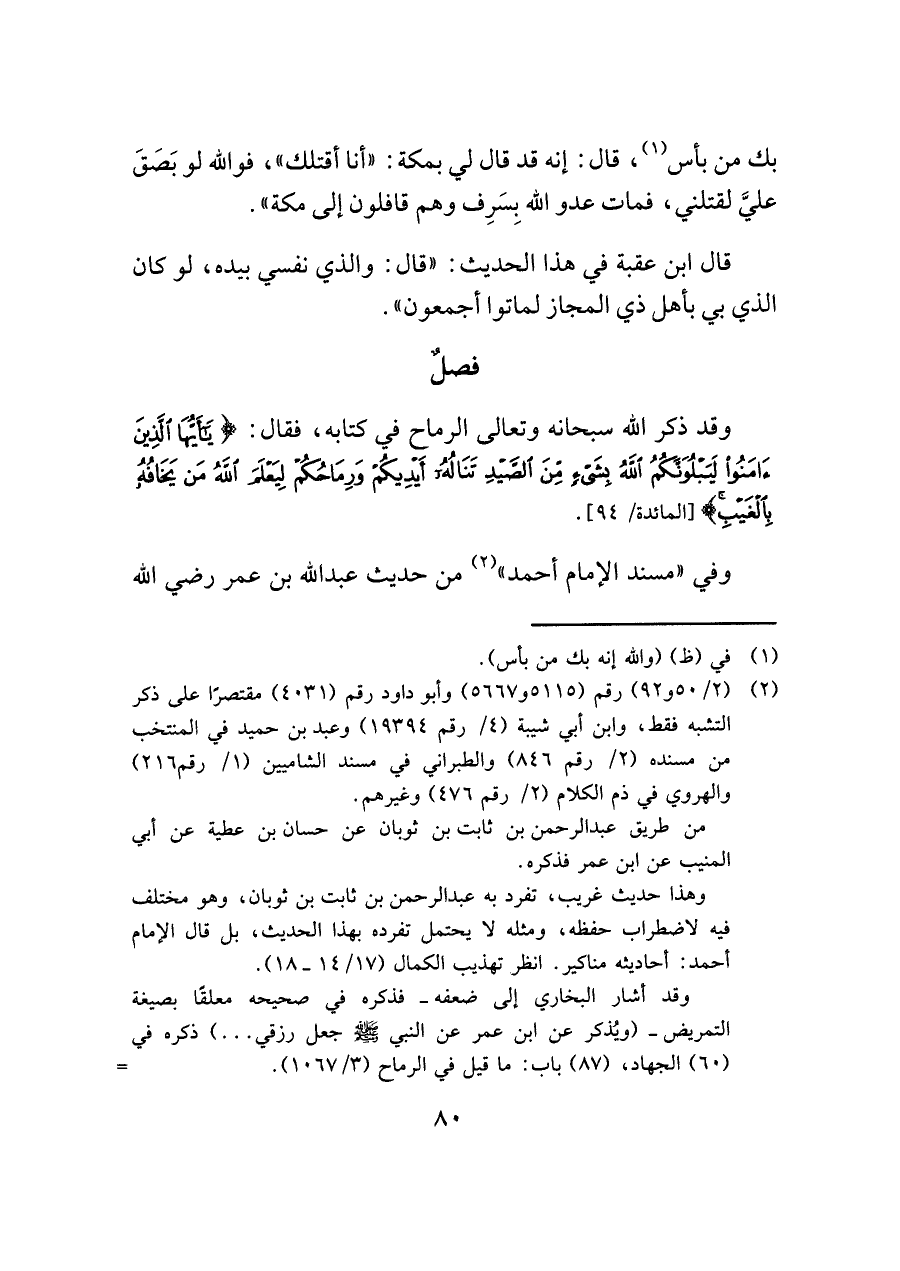 بك من بأس(١)، قال: إنه قد قال لي بمكة: «أنا أقتلك»، فوالله لو بَصَقَ
عليَّ لقتلني، فمات عدو الله بِسَرِف وهم قافلون إلى مكة».
قال ابن عقبة في هذا الحديث: «قال: والذي نفسي بيده، لو كان
الذي بي بأهل ذي المجاز لماتوا أجمعون».
فصلٌ
وقد ذكر الله سبحانه وتعالى الرماح في كتابه، فقال: ﴿يَٰٓأَيُّهَا ٱلَّذِينَ
ءَامَنُوا۟ لَيَبْلُوَنَّكُمُ ٱللَّهُ بِشَىْءٍ مِّنَ ٱلصَّيْدِ تَنَالُهُۥٓ أَيْدِيكُمْ وَرِمَاحُكُمْ لِيَعْلَمَ ٱللَّهُ مَن يَخَافُهُۥ
بِٱلْغَيْبِ ۚ﴾ [المائدة/ ٩٤].
وفي «مسند الإمام أحمد»(٢) من حديث عبدالله بن عمر رضي الله
(١) في (ظ) (والله إنه بك من بأس).
(٢) (٢/ ٥٠و٩٢) رقم (٥١١٥و٥٦٦٧) وأبو داود رقم (٤٠٣١) مقتصرًا على ذكر
التشبه فقط، وابن أبي شيبة (٤/ رقم ١٩٣٩٤) وعبد بن حميد في المنتخب
من مسنده (٢/ رقم ٨٤٦) والطبراني في مسند الشاميين (١/ رقم٢١٦)
والهروي في ذم الكلام (٢/ رقم ٤٧٦) وغيرهم.
من طريق عبدالرحمن بن ثابت بن ثوبان عن حسان بن عطية عن أبي
المنيب عن ابن عمر فذكره.
وهذا حديث غريب، تفرد به عبدالرحمن بن ثابت بن ثوبان، وهو مختلف
فيه لاضطراب حفظه، ومثله لا يحتمل تفرده بهذا الحديث، بل قال الإمام
أحمد: أحاديثه مناكير. انظر تهذيب الكمال (١٧/ ١٤ ـ ١٨).
وقد أشار البخاري إلى ضعفه ـ فذكره في صحيحه معلقًا بصيغة
التمريض ـ (ويُذكر عن ابن عمر عن النبي ﷺ جعل رزقي...) ذكره في
(٦٠) الجهاد، (٨٧) باب: ما قيل في الرماح (٣/ ١٠٦٧). =
٨٠